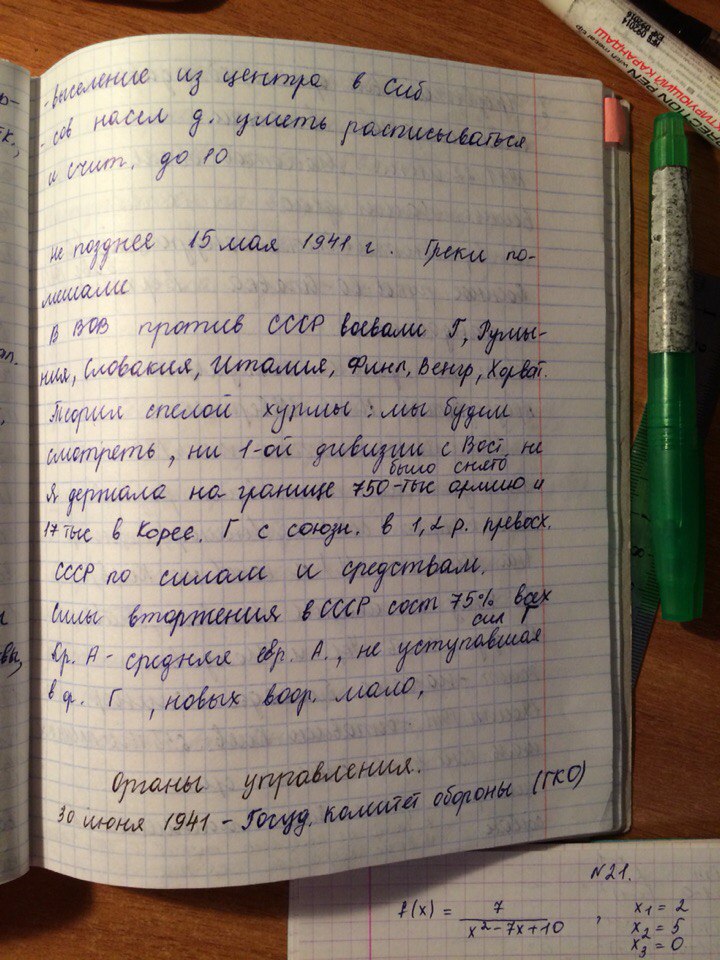 - выселение из центра в Сиб
- сов насел д. уметь расписываться
и счит. до 10
не позднее 15 мая 1941 г. Греки по-
мешали
В ВОВ против СССР воевали Г, Румы-
ния, Словакия, Италия, Финл, Венгр, Хорват.
Теория спелой хурмы: мы будем
смотреть, ни 1-ой дивизии с Вост не
было снято
Я держала на границе 750-тыс армию и
17 тыс в Корее. Г с союзн. в 1,2 р. превосх.
СССР по силам и средствам.
Силы вторжения в СССР сост 75% всех
сил Г
Кр. А - средняя евр. А., не уступавшая
в ф. Г, новых воор. мало,
Органы управления.
30 июня 1941 - Госуд. комитет обороны (ГКО)
N21.
f(x) = 7 / x²-7x+10 , x₁ = 2
x₂ = 5
x₃ = 0
CTION PEN
КТИРУЮЩИЙ КАРАНДАШ